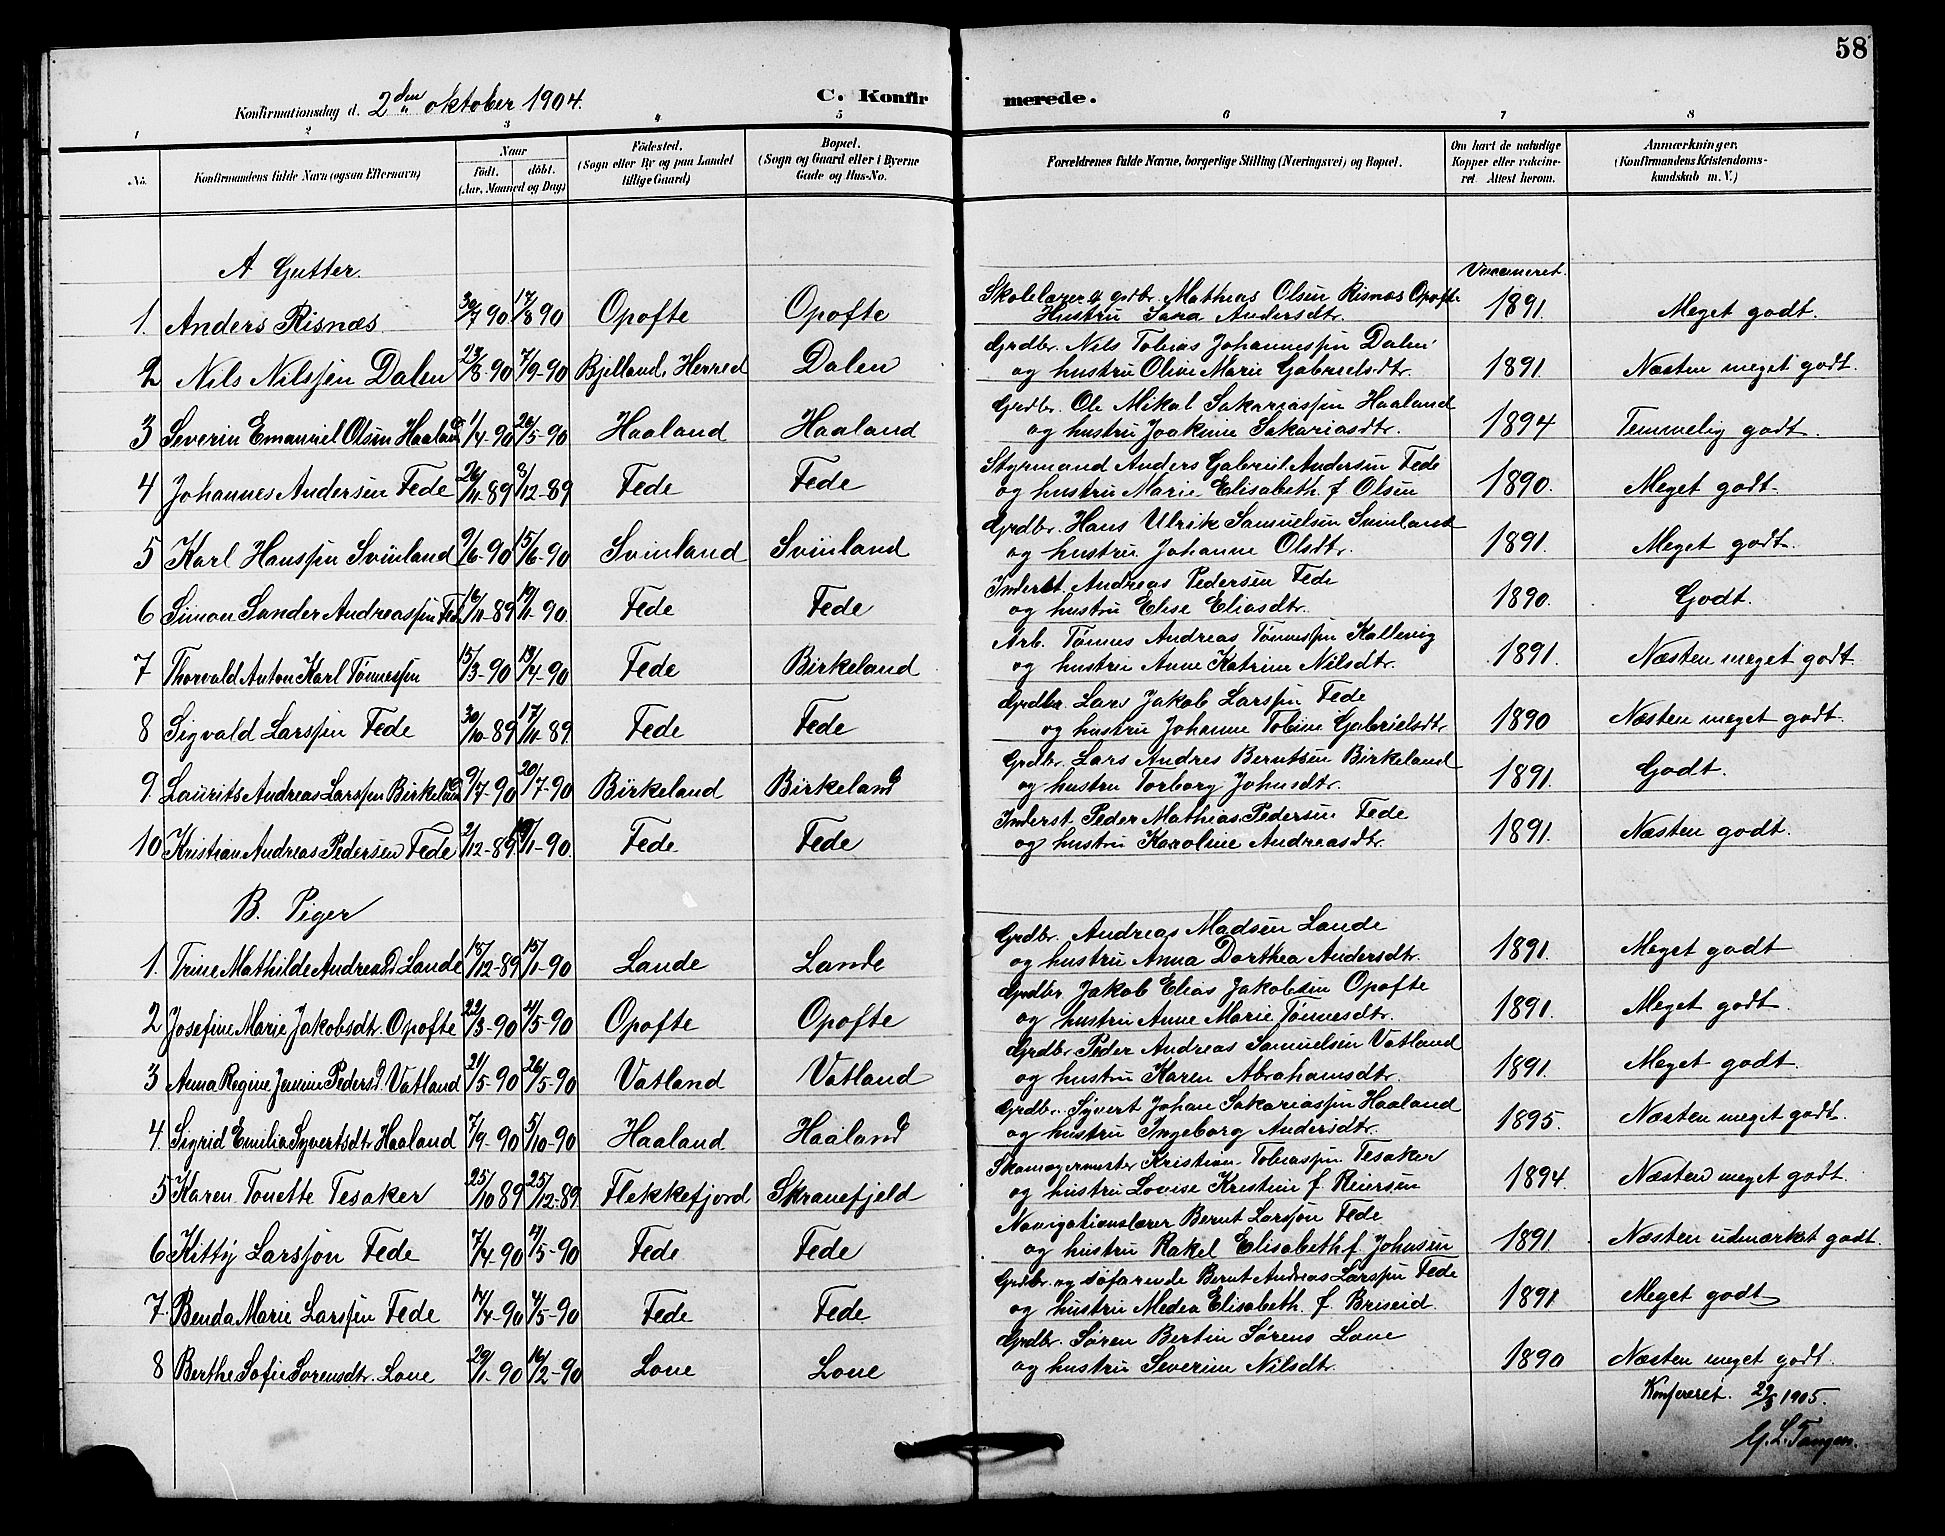 58
Konfirmationsdag d. 2den oktober 1904.
C. Konfirmerede.
1 2 3 4 5 6 7 8
No. | Konfirmandens fulde Navn (ogsaa Efternavn) | Naar födt. döbt. (Aar, Maaned og Dag) | Födested. (Sogn eller By og paa Landet tillige Gaard) | Bopæl. (Sogn og Gaard eller i Byerne Gade og Hus-No. | Forældrenes fulde Navne, borgerlige Stilling (Næringsvei) og Bopæl. | Om havt de naturlige Kopper eller vakcineret. Attest herom. | Anmærkninger. (Konfirmandens Kristendomskundskab m. V.)
A Gutter.
Vaccineret.
1. Anders Risnæs. 30/7 90 17/8 90 Opofte Opofte Skolelærer & grdbr. Mathias Olsen Risnæs Opofte 1891. Meget godt.
Hustru Sara Andersdtr.
2 Nils Nilssen Dalen 23/8-90 7/9-90 Bjelland Herred Dalen Grdbr. Nils Tobias Johannessen Dalen 1891. Næsten meget godt.
og hustru Olive Marie Gabrielsdtr.
3 Severin Emanuel Olsen Haaland 1/4-90 26/5-90 Haaland Haaland Grdbr. Ole Mikal Sakariassen Haaland 1894 Temmelig godt.
og hustru Joakime Sakariasdtr.
4 Johannes Andersen Fede 26/11-89 8/12-89 Fede Fede Styrmand Anders Gabriel Andersen Fede 1890. Meget godt.
og hustru Marie Elisabeth f Olsen
5 Karl Hanssen Svinland 9/6-90 15/6-90 Svinland Svinland Grdbr. Hans Ulrik Samuelsen Svinland 1891. Meget godt.
og hustru Johanne Olsdtr.
6 Simon Sander Andreassen Fede 16/11-89 19/1-90 Fede Fede Inderst Andreas Pedersen Fede 1890. Godt.
og hustru Elise Eliasdtr.
7 Thorvald Anton Karl Tönnessen 15/3-90 13/4-90 Fede Birkeland Arb. Tönnes Andreas Tönnessen Kallevig 1891. Næsten meget godt
og hustru Anne Katrine Nilsdtr.
8 Sigvald Larssen Fede 30/10-89 17/11-89 Fede Fede Grdbr. Lars Jakob Larssen Fede 1890 Næsten meget godt.
og hustru Johanne Tobine Gabrielsdtr
9. Laurits Andreas Larssen Birkeland 9/7-90 20/7-90 Birkeland Birkeland Grdbr. Lars Andres Berntsen Birkeland 1891. Godt.
og hustru Torborg Johnsdtr.
10 Kristian Andreas Pedersen Fede 2/12-89 19/1-90. Fede Fede Inderst. Peder Mathias Pedersen Fede 1891. Næsten godt.
og hustru Karoline Andreasdtr.
B. Piger
1. Trine Mathilde Andreasd. Lande 18/12-89 15/1-90 Lande Lande Grdbr. Andreas Madsen Lande 1891. Meget godt
og hustru Anna Dorthea Andersdtr.
2 Josefine Marie Jakobsdtr. Opofte 22/3-90 4/5-90 Opofte Opofte Grdbr Jakob Elias Jakobsen Opofte 1891. Meget godt.
og hustru Anne Marie Tönnesdtr.
3 Anna Regine Janine Pedersd. Vatland 21/5-90 26/5-90 Vatland Vatland Grdbr. Peder Andreas Samuelsen Vatland 1891. Meget godt.
og hustru Karen Abrahamsdtr.
4. Sigrid Emilia Syvertsdtr Haaland 7/9-90 5/10-90 Haaland Haaland Grdbr. Syvert Johan Sakariassen Haaland 1895. Næsten meget godt.
og hustru Ingeborg Andersdtr.
5 Karen Tonette Tesaker 25/10 89 25/12-89 Flekkefjord Skranefjeld Skomagermester Kristian Tobiassen Tesaker 1894. Næsten meget godt.
og hustru Lovise Kristine f. Reiersen
6 Kitty Larsson Fede 7/4-90 17/5-90 Fede Fede Navigationslærer Bernt Larsson Fede 1891. Næsten udmærket godt.
og hustru Rakel Elisabeth f. Johnsen
7. Benda Marie Larssen Fede 17/4-90 4/5-90 Fede Fede Grdbr. og söfarende Bernt Andreas Larssen Fede 1891 Meget godt
og hustru Medea Elisabeth f. Briseid.
8 Berthe Sofie Sörensdtr. Loue 29/1-90 16/2-90 Loue Loue Grdbr. Sören Bertin Sörens Loue 1890 Næsten meget godt.
og hustru Severine Nilsdtr.
Konfereret. 22/3 1905.
G. L. Tangen.